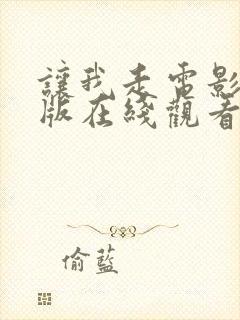 讓我走電影
版在綫觀看
偷藍